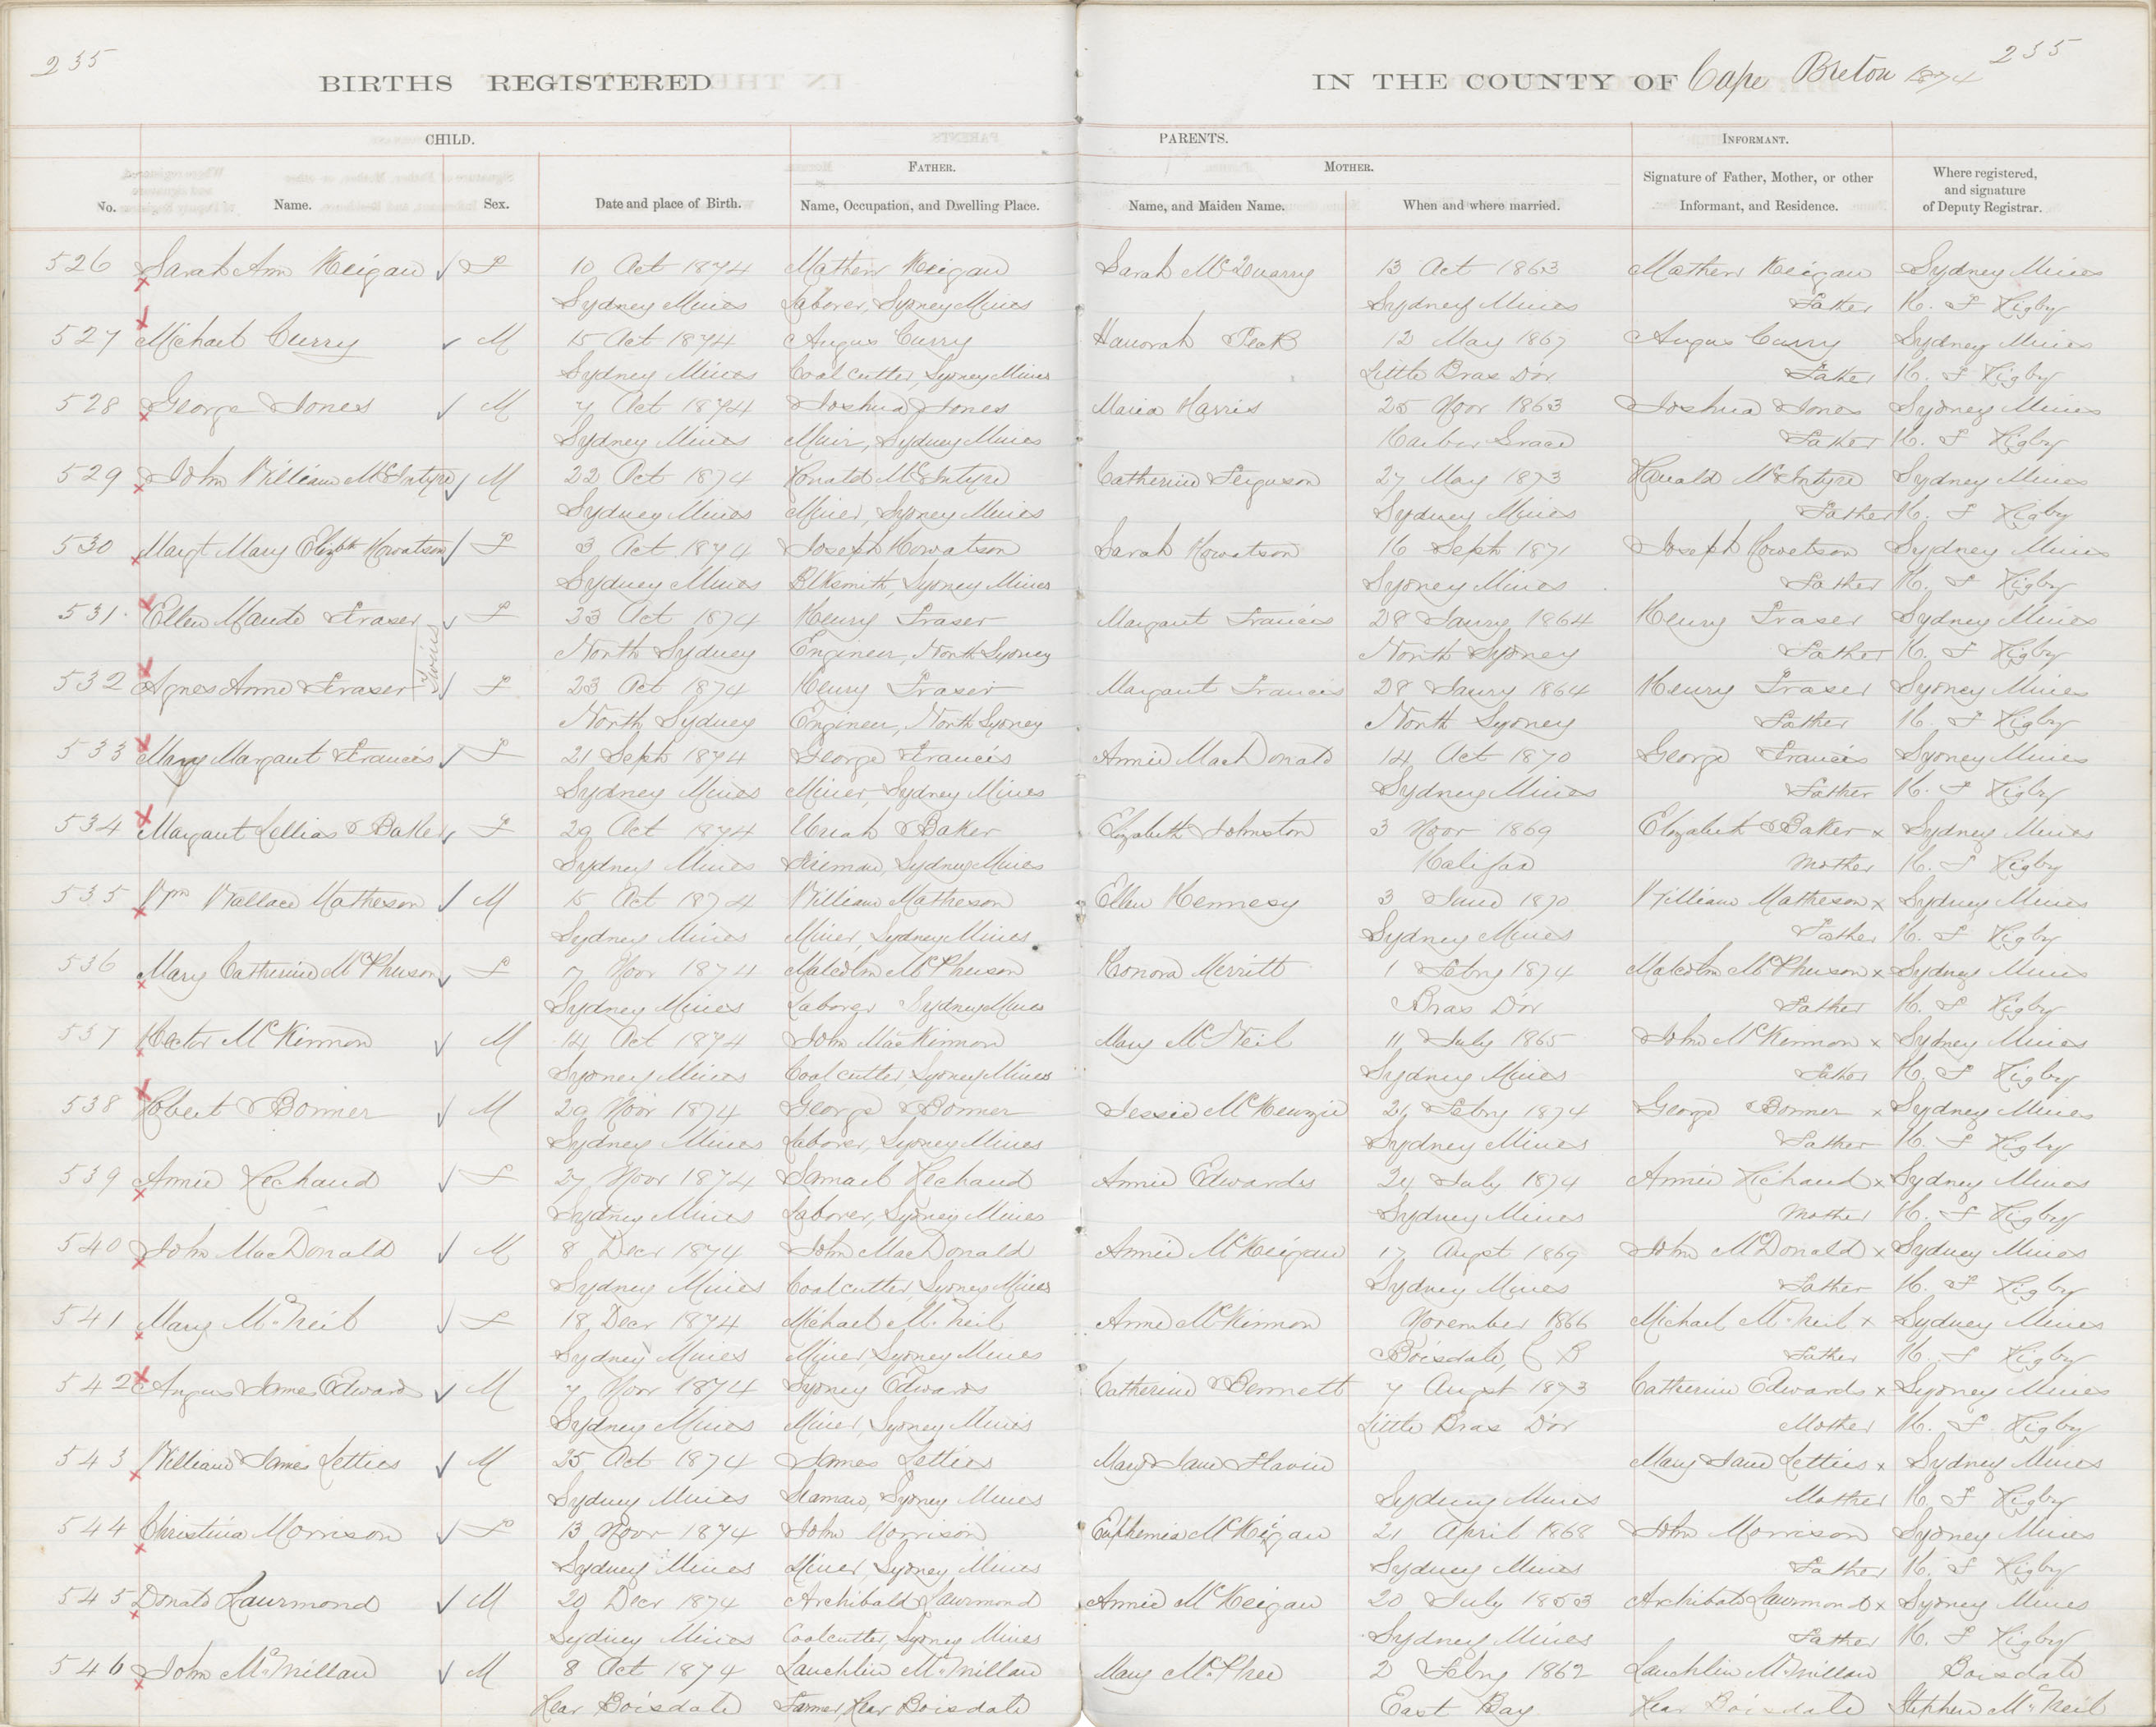 235
235
BIRTHS REGISTERED
IN THE COUNTY OF Cape Breton 1874
CHILD.
PARENTS.
INFORMANT.
FATHER.
MOTHER.
No.
Name.
Sex.
Date and place of Birth.
Name, Occupation, and Dwelling Place.
Name, and Maiden Name.
When and where married.
Signature of Father, Mother, or other
Informant, and Residence.
Where registered,
and signature
of Deputy Registrar.
526 Sarah Ann Keigan F 10 Oct 1874 Mathew Keigan Sarah McQuarry 13 Oct 1863 Mathew Keigan Sydney Mines
Sydney Mines Laborer, Sydney Mines Sydney Mines Father Rigby
527 Michael Curry M 15 Oct 1874 Angus Curry Hanorah Peck 12 May 1867 Angus Curry Sydney Mines
Sydney Mines Coal cutter, Sydney Mines Little Bras Dor Father Rigby
528 George Jones M 7 Oct 1874 Joshua Jones Maria Harris 25 Novr 1863 Joshua Jones Sydney Mines
Sydney Mines Minr, Sydney Mines Harbor Grace Father Rigby
529 John William McIntyre M 22 Oct 1874 Ronald McIntyre Catherine Ferguson 27 May 1873 Ranald McIntyre Sydney Mines
Sydney Mines Miner, Sydney Mines Sydney Mines Father Rigby
530 Margt Mary Elizbth Howatson F 3 Oct 1874 Joseph Howatson Sarah Howatson 16 Sept 1871 Joseph Howetson Sydney Mines
Sydney Mines Blksmith, Sydney Mines Sydney Mines Father Rigby
531 Ellen Maude Fraser F 23 Oct 1874 Henry Fraser Margaret Francis 28 Janry 1864 Henry Fraser Sydney Mines
Twins
North Sydney Engineer, North Sydney North Sydney Father Rigby
532 Agnes Anne Fraser F 23 Oct 1874 Henry Fraser Margaret Francis 28 Janry 1864 Henry Fraser Sydney Mines
North Sydney Engineer, North Sydney North Sydney Father Rigby
533 Mary Margaret Francis F 21 Sept 1874 George Francis Annie MacDonald 14 Oct 1870 George Francis Sydney Mines
Sydney Mines Miner, Sydney Mines Sydney Mines Father Rigby
534 Margaret Lellias Baker F 29 Oct 1874 Uriah Baker Elizabeth Johnston 3 Novr 1869 Elizabeth Baker x Sydney Mines
Sydney Mines Fireman, Sydney Mines Halifax Mother Rigby
535 Wm Wallace Matheson M 15 Oct 1874 William Matheson Ellen Hennesy 3 June 1870 William Matheson x Sydney Mines
Sydney Mines Miner, Sydney Mines Sydney Mines Father Rigby
536 Mary Catherine McPherson F 7 Novr 1874 Malcolm McPherson Honora Merritt 1 Febry 1874 Malcolm McPherson x Sydney Mines
Sydney Mines Laborer Sydney Mines Bras D'or Father Rigby
537 Hector McKinnon M 14 Oct 1874 John MacKinnon Mary McNeil 11 July 1865 John McKinnon x Sydney Mines
Sydney Mines Coal cutter, Sydney Mines Sydney Mines Father Rigby
538 Robert Bonner M 29 Novr 1874 George Bonner Jessie McKenzie 21 Febry 1874 George Bonner x Sydney Mines
Sydney Mines Laborer, Sydney Mines Sydney Mines Father Rigby
539 Annie Rechaud F 27 Novr 1874 Samael Rechaud Annie Edwards 24 July 1874 Annie Richaud x Sydney Mines
Sydney Mines Laborer, Sydney Mines Sydney Mines Mother Rigby
540 John MacDonald M 8 Decr 1874 John MacDonald Annie McKeigan 17 Augst 1869 John McDonald x Sydney Mines
Sydney Mines Coalcutter, Sydney Mines Sydney Mines Father Rigby
541 Mary McNeil F 18 Decr 1874 Michael McNeil Anne McKinnon November 1866 Michael McNeil x Sydney Mines
Sydney Mines Miner, Sydney Mines Boisdale, C B Father Rigby
542 Angus James Edwards M 7 Novr 1874 Sydney Edwards Catherine Bennett 7 Augst 1873 Catherine Edwards x Sydney Mines
Sydney Mines Miner, Sydney Mines Little Bras D'or Mother Rigby
543 William James Letties M 25 Oct 1874 James Letties Mary Jane Flavin Mary Jane Letties x Sydney Mines
Sydney Mines Seaman, Sydney Mines Sydney Mines Mother Rigby
544 Christina Morrison F 13 Novr 1874 John Morrison Euphemia McKeigan 21 April 1868 John Morrison Sydney Mines
Sydney Mines Miner, Sydney Mines Sydney Mines Father Rigby
545 Donald Laurmond M 20 Decr 1874 Archibald Laurmond Annie McKeigan 20 July 1853 Archibald Laurmond x Sydney Mines
Sydney Mines Coalcutter, Sydney Mines Sydney Mines Father Rigby
546 John McMillan M 8 Oct 1874 Lauchlin McMillan Mary McPhee 2 Febry 1862 Lauchlin McMillan Boisdale
Rear Boisdale Farmer, Rear Boisdale East Bay Rear Boisdale Stephen McNeil